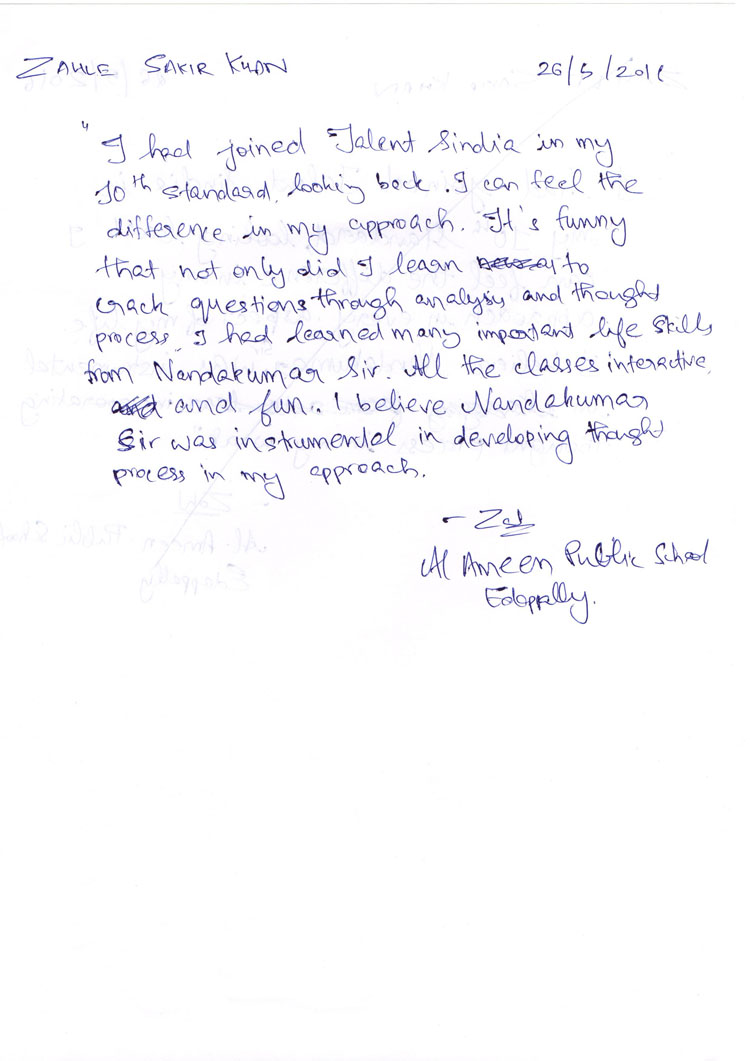 ZAHLE SAKIR KHAN 26/5/2016
" I had joined Talent Sindia in my
10th standard, looking back. I can feel the
difference in my approach. It's funny
that not only did I learn to
crack questions through analysis and thought
process, I had learned many important life skills
from Nandakumar Sir. All the classes interactive,
and fun. I believe Nandakumar
Sir was instrumental in developing thought
process in my approach.
Al Ameen Public School
Edappally.